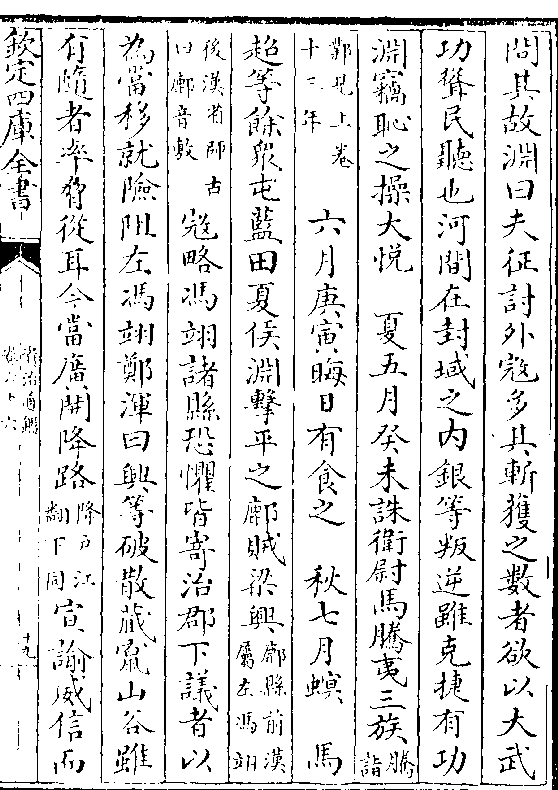 問其故淵曰夫征討外寇多其斬獲之數者欲以大武
功聳民聽也河間在封域之内銀等叛逆雖克捷有功
淵竊恥之操大悦　夏五月癸未誅衛尉馬騰夷三族騰詣
鄴見上卷十三年　六月庚寅晦日有食之　秋七月螟　馬
超等餘衆屯藍田夏侯淵擊平之鄜賊梁興鄜縣前漢屬左馮翊
後漢省師古曰鄜音敷寇略馮翊諸縣恐懼皆寄治郡下議者以
為當移就險阻左馮翊鄭渾曰興等破散藏竄山谷雖
有隨者率脅從耳今當廣開降路降户江翻下同宣諭威信而
欽定四庫全書
資治通鑑
卷六十六
十九